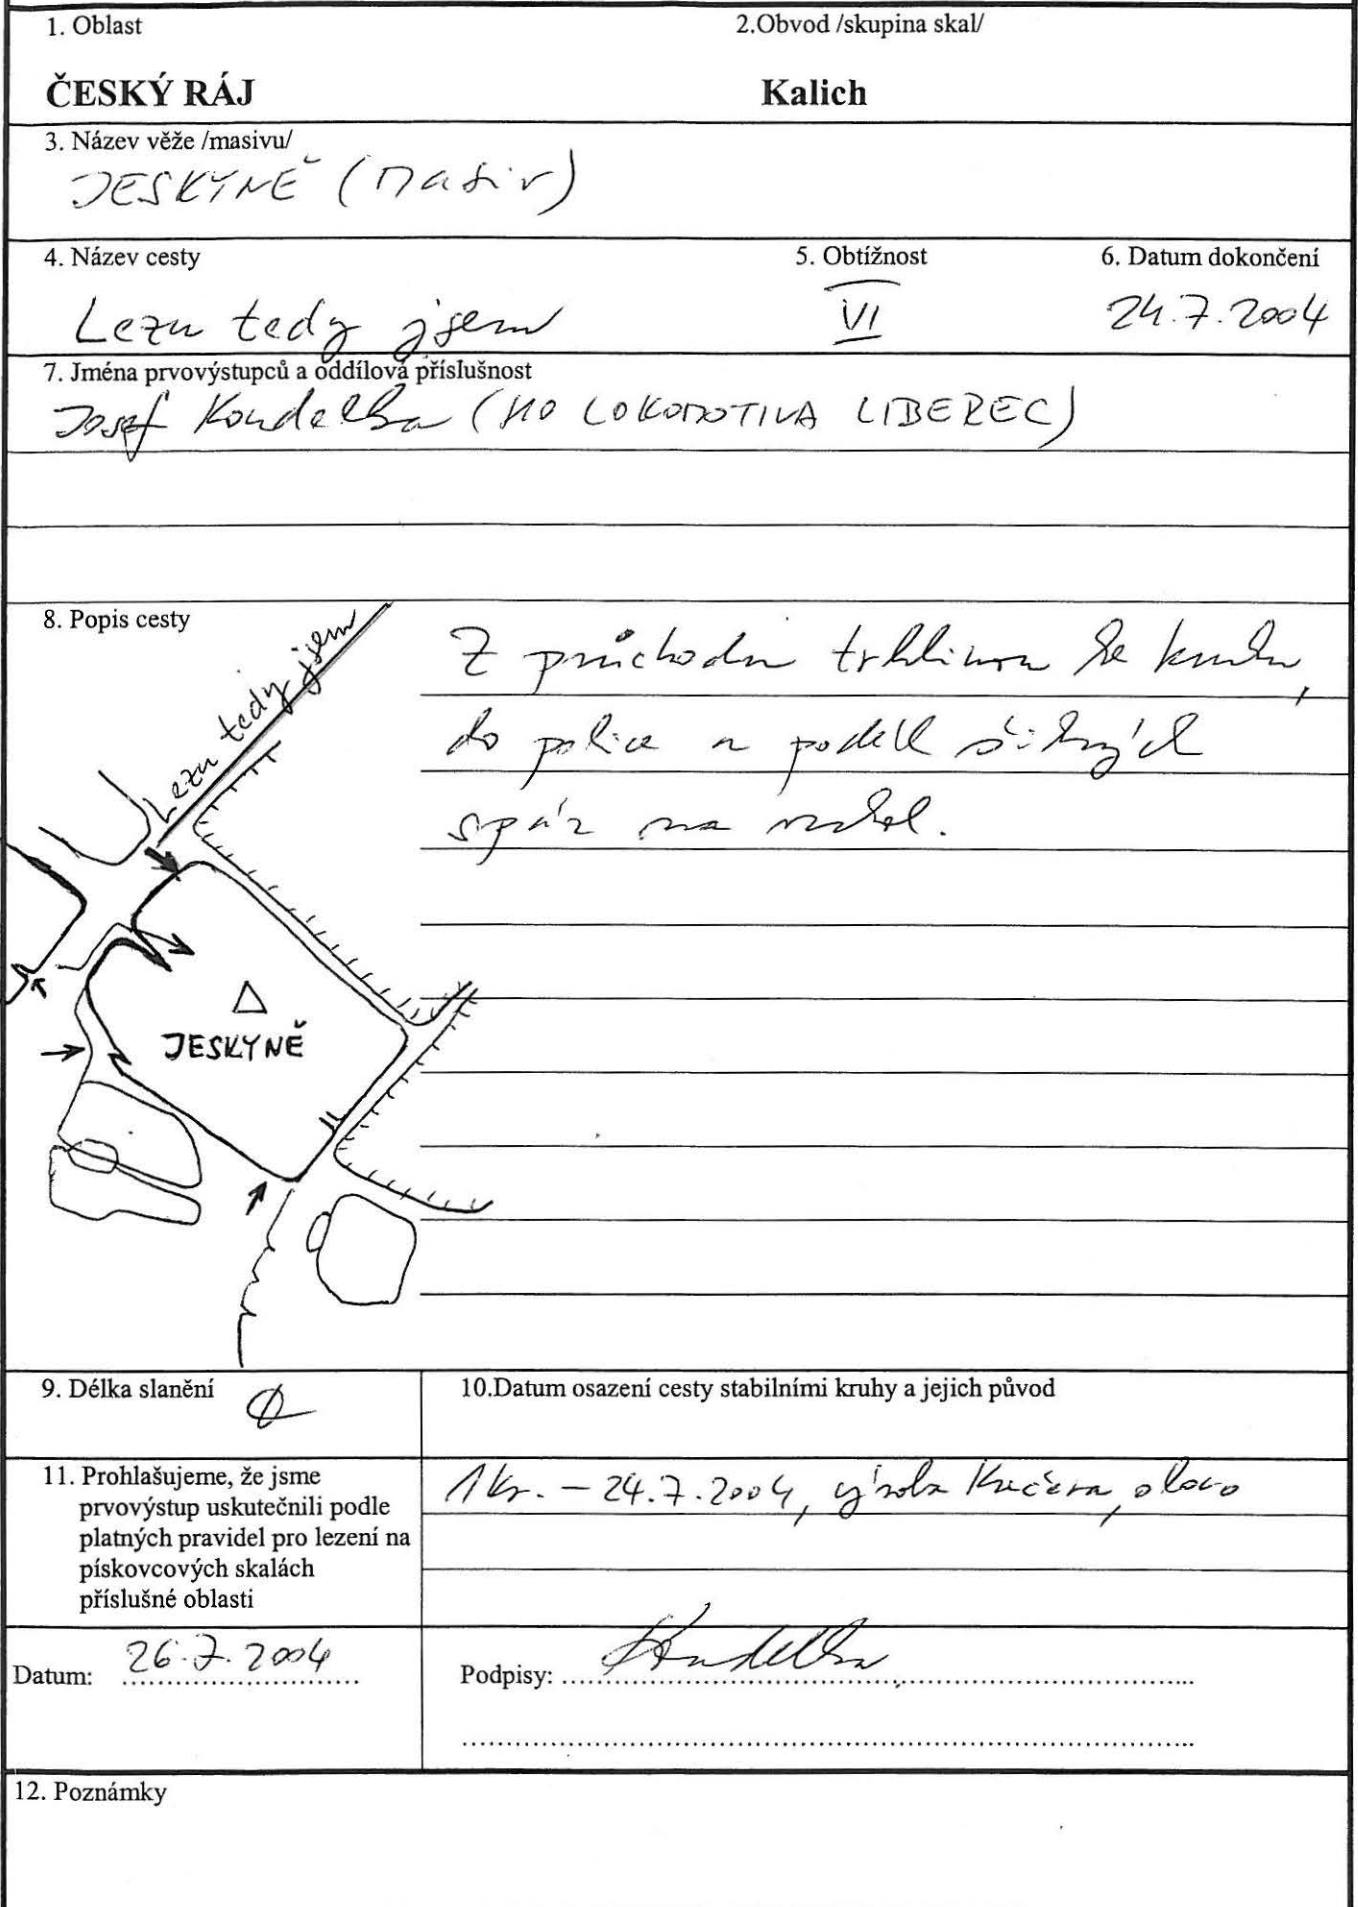 1. Oblast 2.Obvod /skupina skal/
ČESKÝ RÁJ Kalich
3. Název věže /masivu/
JESKYNĚ (masiv)
4. Název cesty 5. Obtížnost 6. Datum dokončení
Lezu tedy jsem VI 24.7.2004
7. Jména prvovýstupců a oddílová příslušnost
Josef Koudelka (HO LOKOMOTIVA LIBEREC)
8. Popis cesty
Lezu tedy jsem
Z průchodu trhlinou ke kruhu,
do police a podél šikmých
spár na vrchol.
JESKYNĚ
9. Délka slanění Ø 10.Datum osazení cesty stabilními kruhy a jejich původ
11. Prohlašujeme, že jsme
prvovýstup uskutečnili podle
platných pravidel pro lezení na
pískovcových skalách
příslušné oblasti
1 kr. – 24.7.2004, výroba Kučera, olovo
Datum: 26.7.2004 Podpisy: Koudelka
12. Poznámky